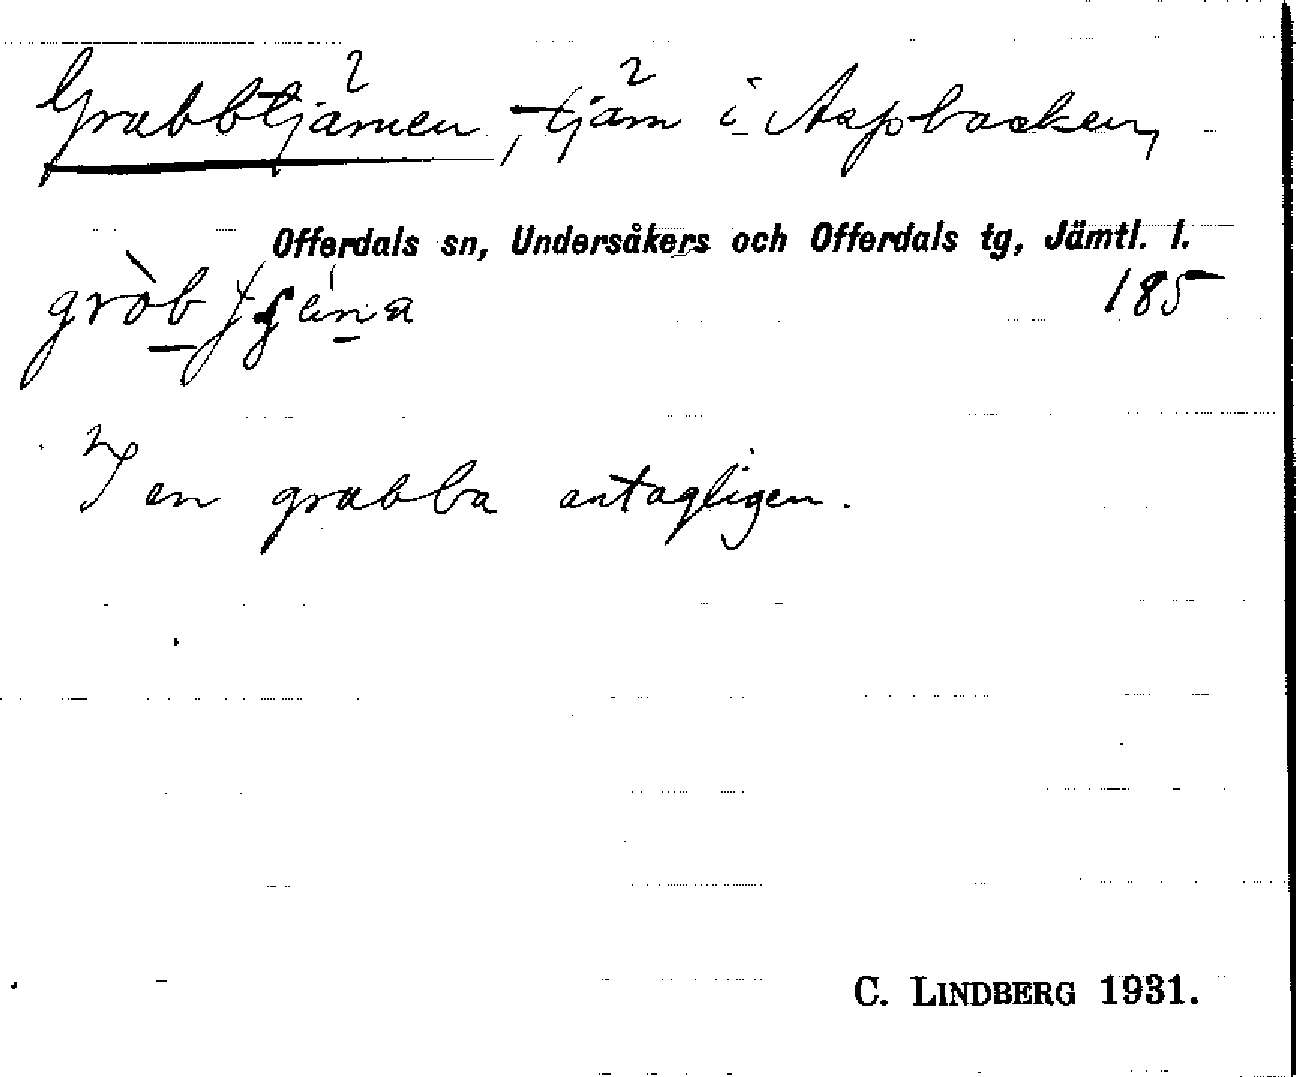 Grabbtjärnen, tjärn i Aspbacken,
Offerdals sn, Undersåkers och Offerdals tg, Jämtl. l.
185
I en grabba antagligen.
C. LINDBERG 1931.